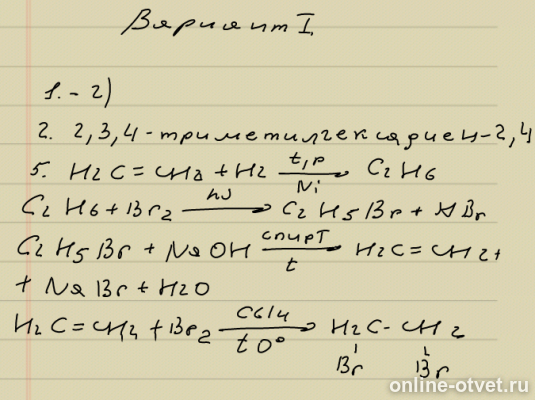 Вариант I.
1. - 2)
2. 2,3,4-триметилгексадиен-2,4
5. H2C = CH2 + H2 t,p Ni C2H6
C2H6 + Br2 hν C2H5Br + HBr
C2H5Br + NaOH спирт t H2C = CH2 +
+ NaBr + H2O
H2C = CH2 + Br2 CCl4 t 0° H2C - CH2
Br Br
online-otvet.ru